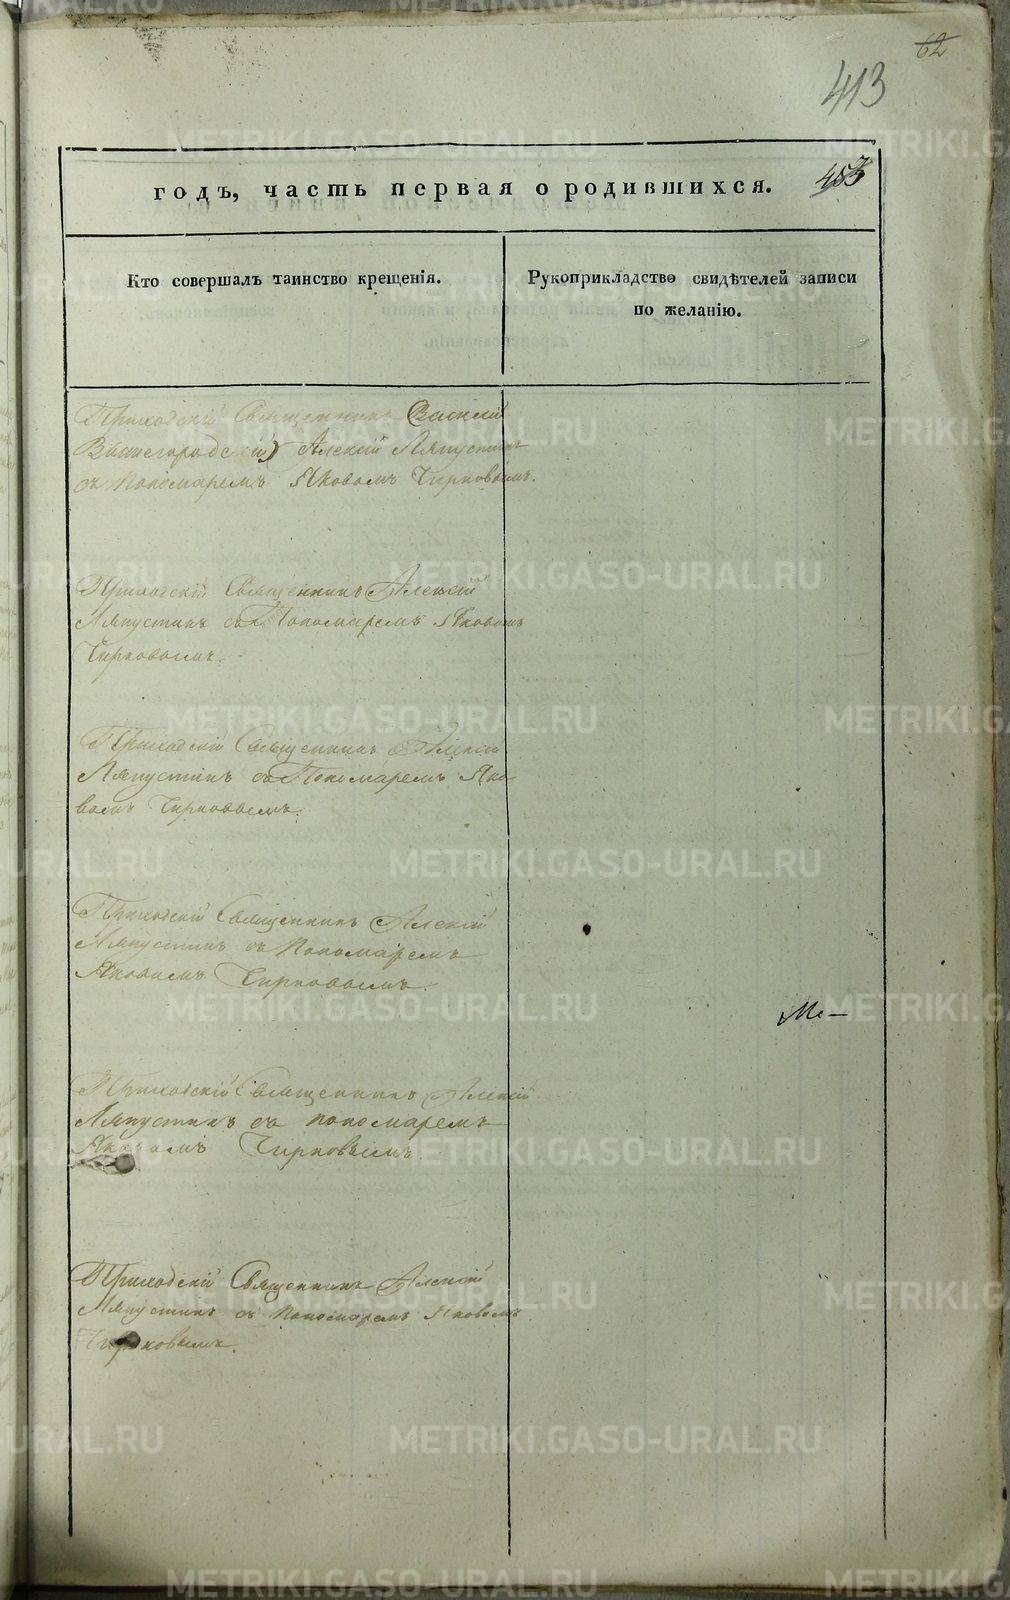 62
413
годъ, часть первая о родившихся.
Кто совершалъ таинство крещенія.
Рукоприкладство свидѣтелей записи
по желанію.
Приходскій Священникъ Василій
Вышегородскій) Алексій Ляпустинъ
съ пономаремъ Яковомъ Чирковымъ.
Приходскій Священникъ Алексій
Ляпустинъ съ Пономаремъ Яковомъ
Чирковымъ.
Приходскій Священникъ Алексій
Ляпустинъ съ Пономаремъ Яко-
вомъ Чирковымъ.
Приходскій Священникъ Алексій
Ляпустинъ съ Пономаремъ
Яковомъ Чирковымъ.
Ме-
Приходскій Священникъ Алексій
Ляпустинъ съ пономаремъ
Яковомъ Чирковымъ
Приходскій Священникъ Алексій
Ляпустинъ съ Пономаремъ Яковомъ
Чирковымъ.
METRIKI.GASO-URAL.RU